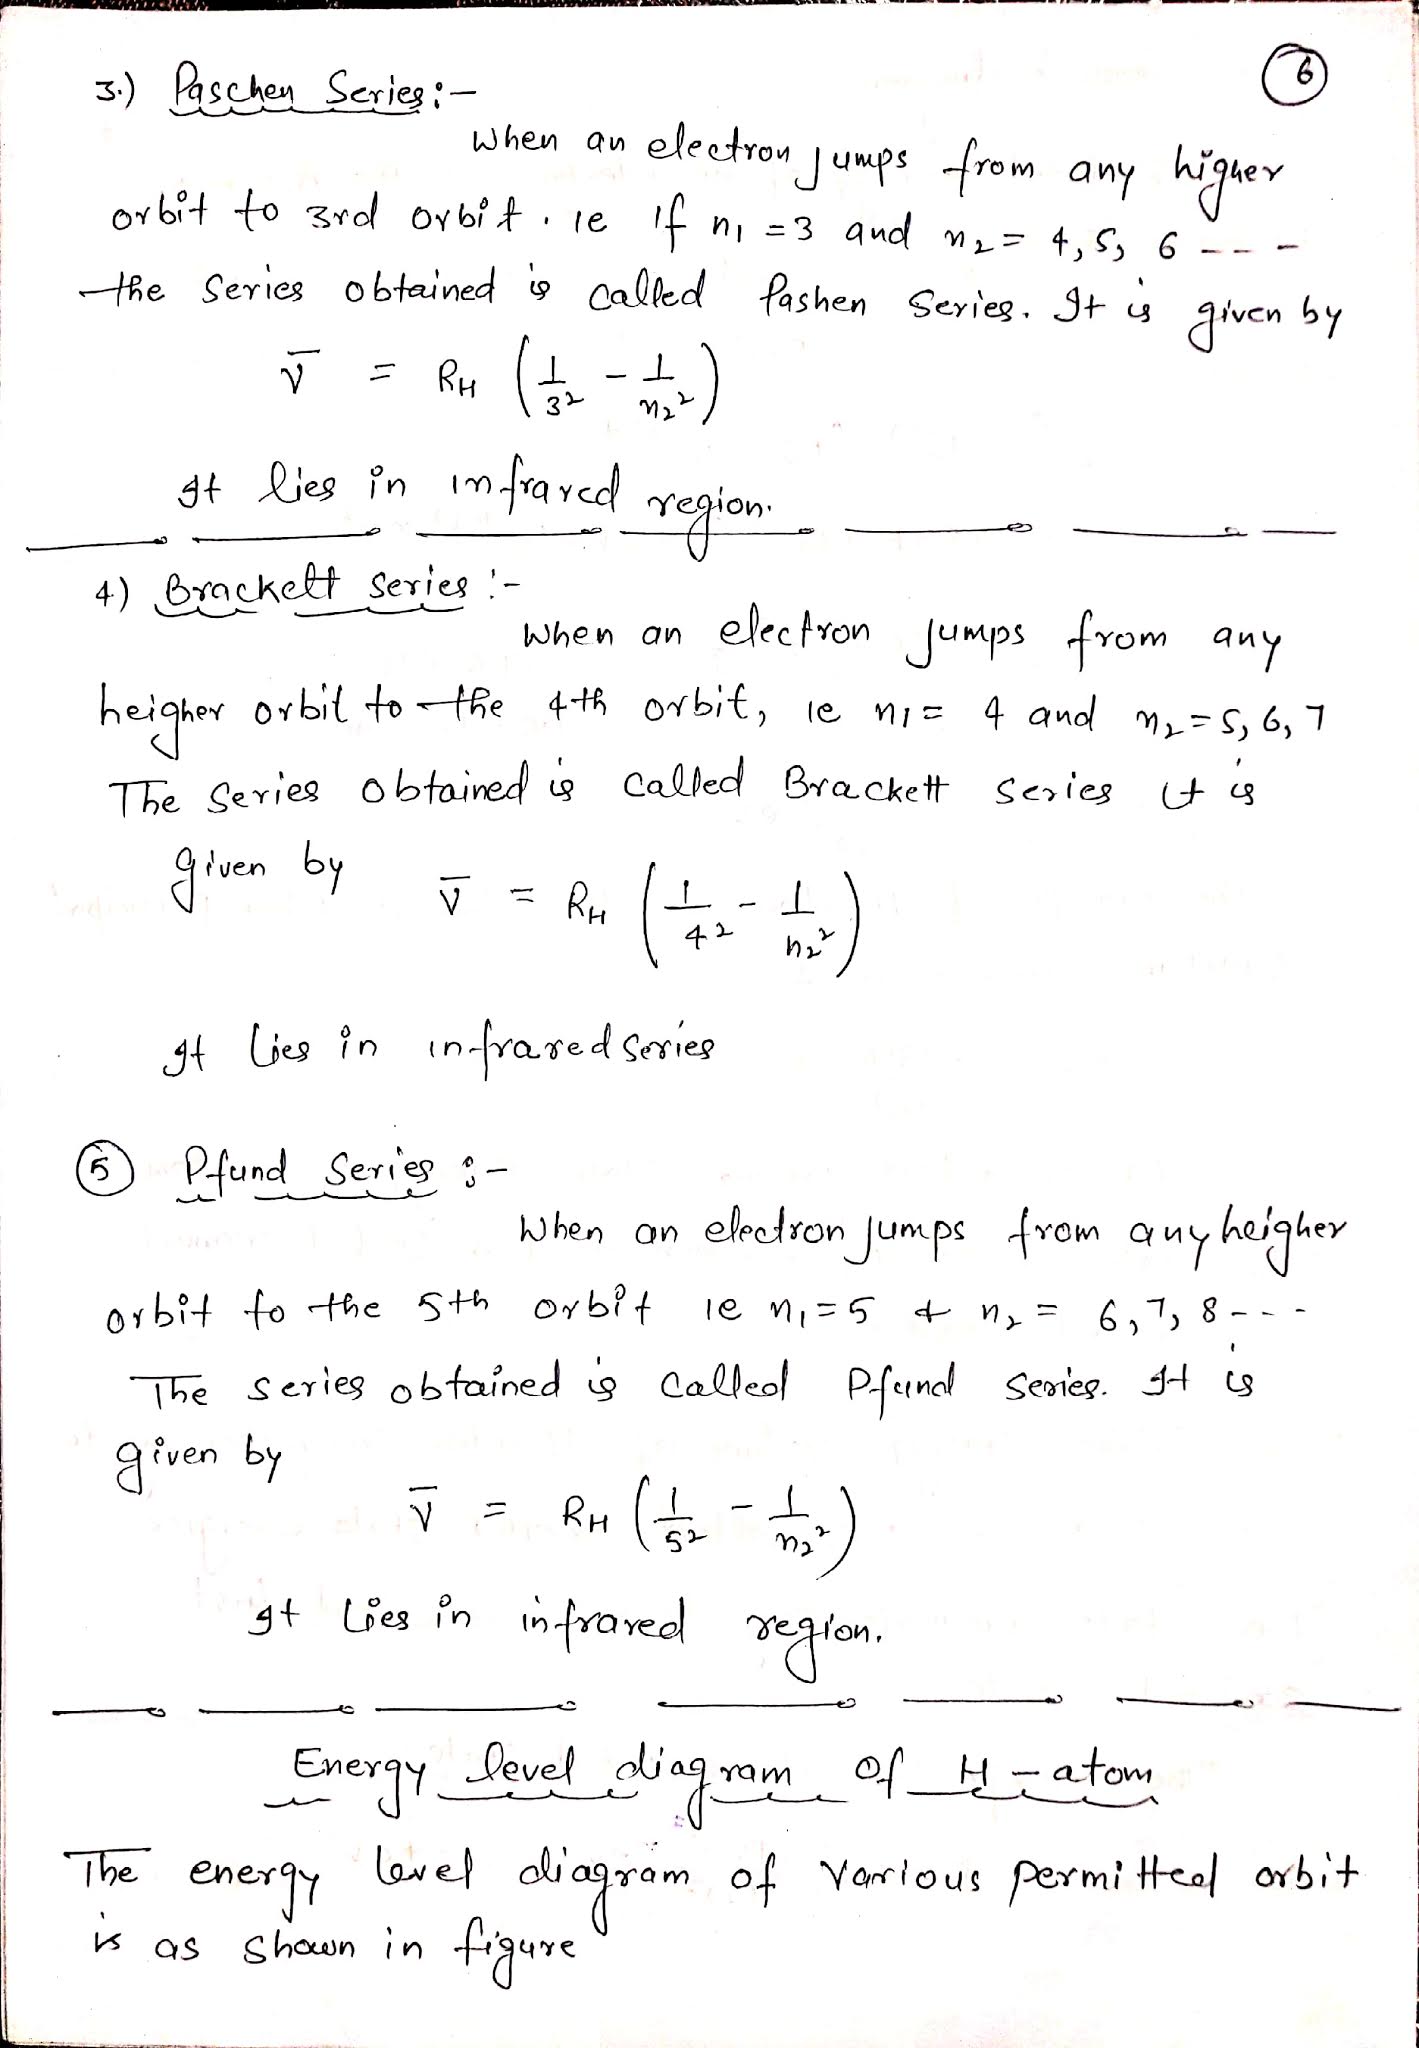 6
3.) Paschen Series:-
When an electron jumps from any higher
orbit to 3rd orbit. ie If n₁ = 3 and n₂ = 4, 5, 6 - - -
the series obtained is called Pashen Series. It is given by
V̅ = R_H (1/3² - 1/n₂²)
It lies in infrared region.
4) Brackett series :-
When an electron jumps from any
heigher orbit to the 4th orbit, ie n₁ = 4 and n₂ = 5, 6, 7
The series obtained is called Brackett series it is
given by V̅ = R_H (1/4² - 1/n₂²)
It lies in infrared series
5 Pfund Series :-
When an electron jumps from any heigher
orbit to the 5th orbit ie n₁ = 5 & n₂ = 6, 7, 8 - - -
The series obtained is called Pfund series. It is
given by
V̅ = R_H (1/5² - 1/n₂²)
It lies in infrared region.
Energy level diagram of H - atom
The energy level diagram of various permitted orbit
is as shown in figure